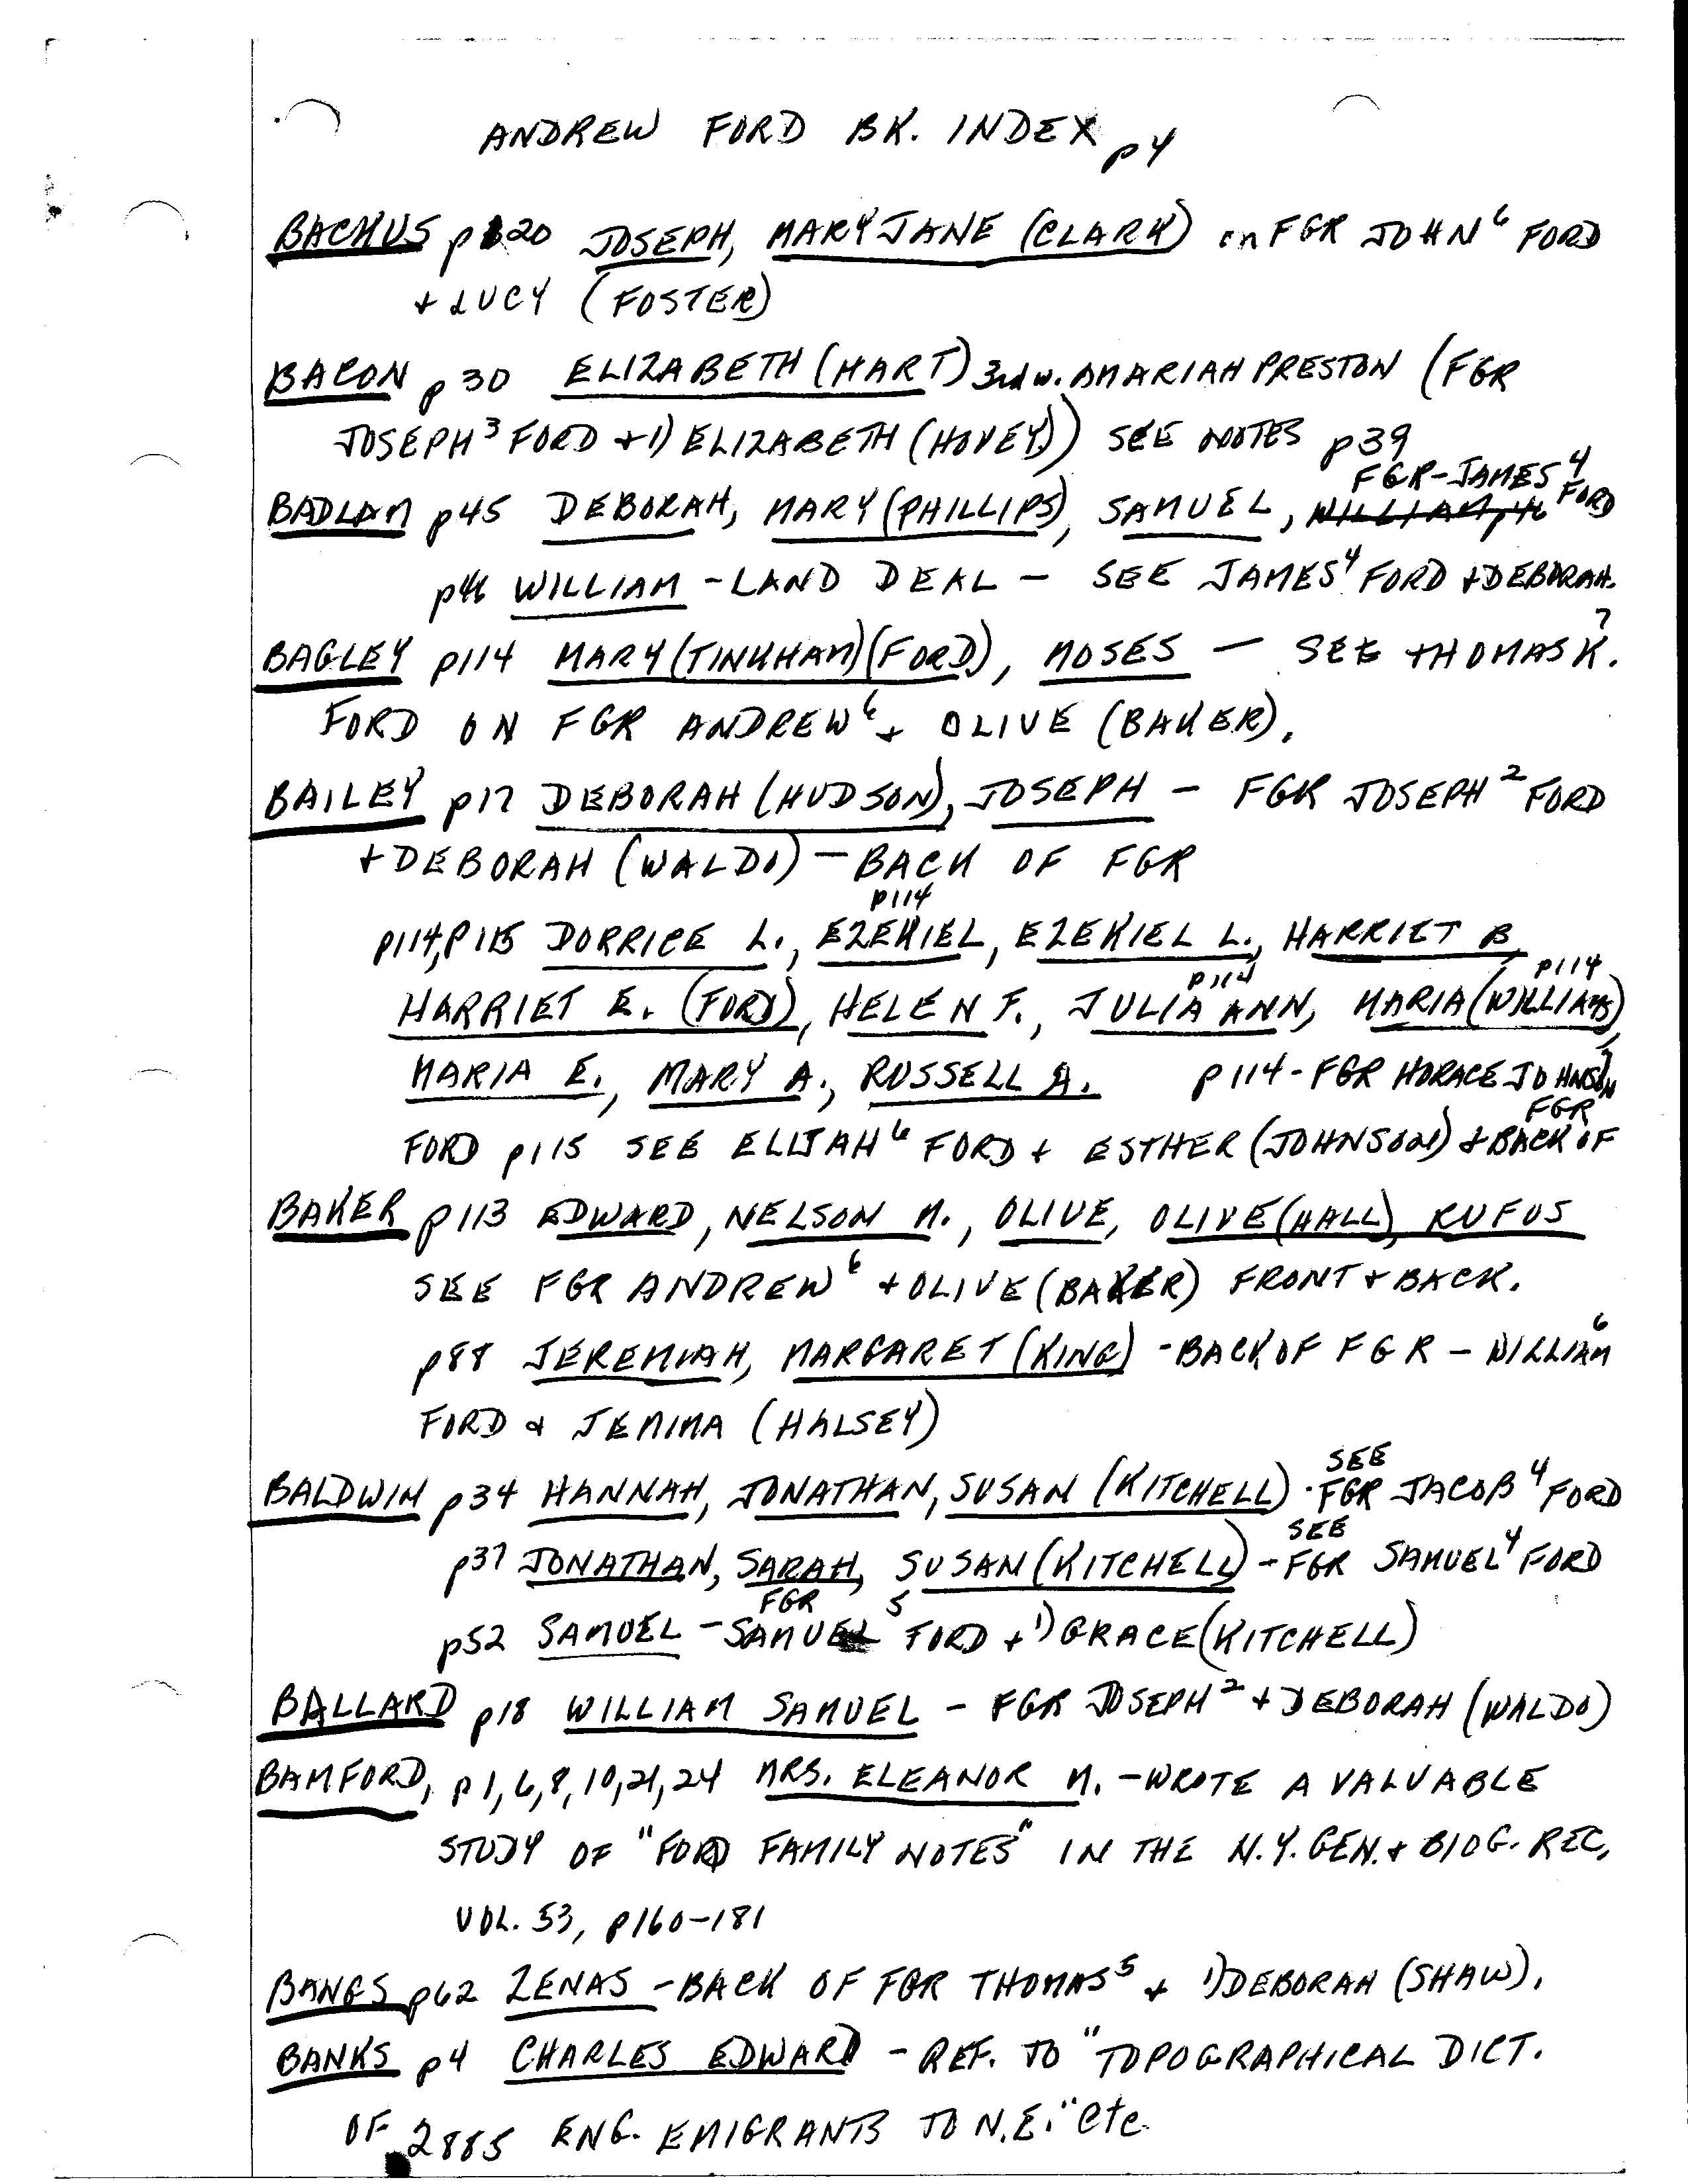 ANDREW FORD BK. INDEX p4
BACKUS p120 JOSEPH, MARY JANE (CLARK) on FGR JOHN⁶ FORD
+ LUCY (FOSTER)
BACON p30 ELIZABETH (HART) 3rd w. AMARIAH PRESTON (FGR
JOSEPH³ FORD + 1) ELIZABETH (HOVEY)) SEE NOTES p39
FGR-JAMES⁴
BADLAM p45 DEBORAH, MARY (PHILLIPS), SAMUEL, WILLIAM, p46 FORD
p46 WILLIAM - LAND DEAL - SEE JAMES⁴ FORD + DEBORAH.
BAGLEY p114 MARY (TINKHAM) (FORD), MOSES - SEE THOMAS K.⁷
FORD ON FGR ANDREW⁶ + OLIVE (BAKER).
BAILEY p17 DEBORAH (HUDSON), JOSEPH - FGR JOSEPH² FORD
+ DEBORAH (WALDO) - BACK OF FGR
p114
p114, p115 DORRICE L., EZEKIEL, EZEKIEL L., HARRIET B,
p114 p114
HARRIET E. (FORD), HELEN F., JULIA ANN, MARIA (WILLIAMS),
MARIA E., MARY A., RUSSELL A. p114 - FGR HORACE JOHNSON⁷
FGR
FORD p115 SEE ELIJAH⁶ FORD + ESTHER (JOHNSON) + BACK OF
BAKER p113 EDWARD, NELSON M., OLIVE, OLIVE (HALL), RUFUS
SEE FGR ANDREW⁶ + OLIVE (BAKER) FRONT + BACK.
p88 JEREMIAH, MARGARET (KING) - BACK OF FGR - WILLIAM⁶
FORD & JEMIMA (HALSEY)
SEE
BALDWIN p34 HANNAH, JONATHAN, SUSAN (KITCHELL) · FGR JACOB⁴ FORD
SEE
p37 JONATHAN, SARAH, SUSAN (KITCHELL) - FGR SAMUEL⁴ FORD
FGR
p52 SAMUEL - SAMUEL⁵ FORD + 1) GRACE (KITCHELL)
BALLARD p18 WILLIAM SAMUEL - FGR JOSEPH² + DEBORAH (WALDO)
BAMFORD, p1,6,8,10,21,24 MRS. ELEANOR M. - WROTE A VALUABLE
STUDY OF "FORD FAMILY NOTES" IN THE N.Y. GEN. + BIOG. REC,
VOL. 53, p160-181
BANGS p62 ZENAS - BACK OF FGR THOMAS⁵ + 1) DEBORAH (SHAW).
BANKS p4 CHARLES EDWARD - REF. TO "TOPOGRAPHICAL DICT.
OF 2885 ENG. EMIGRANTS TO N.E." etc.